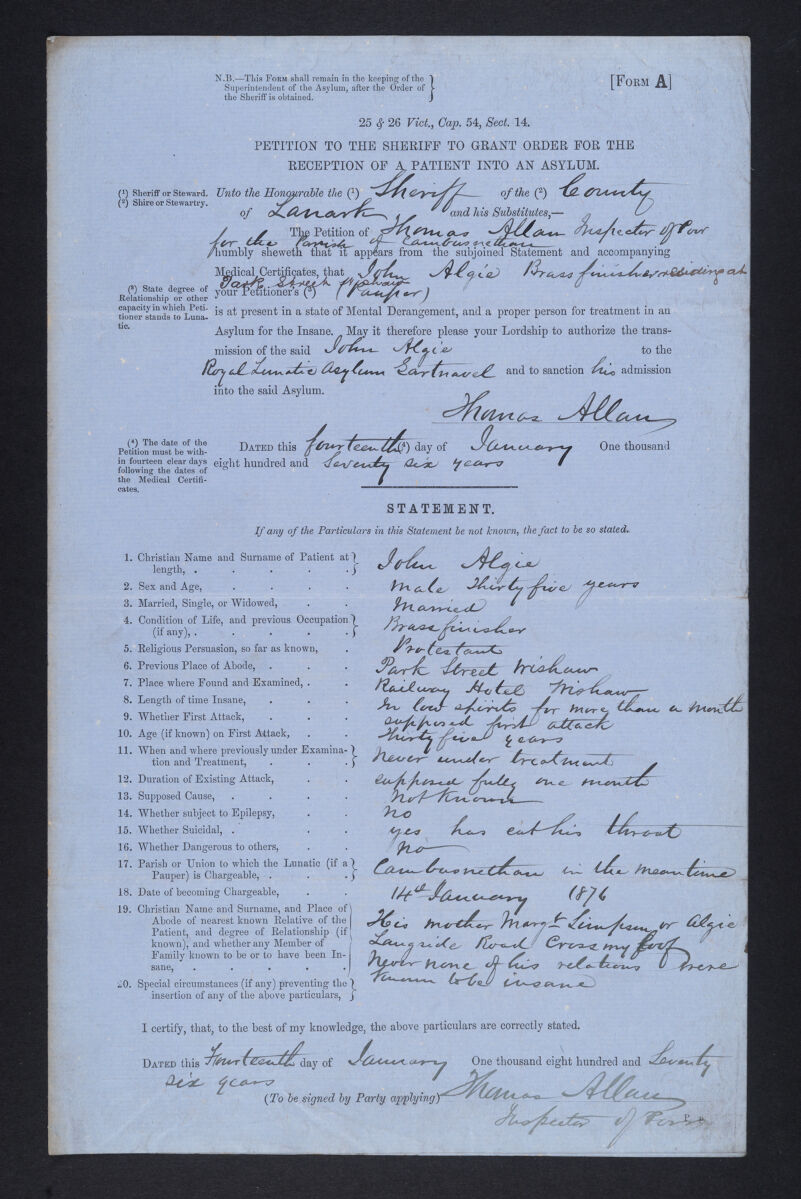 N.B.—This Form shall remain in the keeping of the
Superintendent of the Asylum, after the Order of
the Sheriff is obtained.
[Form A]
25 & 26 Vict., Cap. 54, Sect. 14.
PETITION TO THE SHERIFF TO GRANT ORDER FOR THE
RECEPTION OF A PATIENT INTO AN ASYLUM.
(¹) Sheriff or Steward.
(²) Shire or Stewartry.
Unto the Honourable the (¹) Sheriff of the (²) County
of Lanark and his Substitutes,—
The Petition of Thomas Allan Inspector of Poor
for the Parish of Cambusnethan
humbly sheweth that it appears from the subjoined Statement and accompanying
Medical Certificates, that John Algie Brassfinisher residing at
Park Street Wishaw
(³) State degree of
Relationship or other
capacity in which Peti-
tioner stands to Luna-
tic.
your Petitioner's (³) (Pauper)
is at present in a state of Mental Derangement, and a proper person for treatment in an
Asylum for the Insane. May it therefore please your Lordship to authorize the trans-
mission of the said John Algie to the
Royal Lunatic Asylum Gartnavel and to sanction his admission
into the said Asylum.
Thomas Allan
(⁴) The date of the
Petition must be with-
in fourteen clear days
following the dates of
the Medical Certifi-
cates.
Dated this fourteenth (⁴) day of January One thousand
eight hundred and Seventy six years
STATEMENT.
If any of the Particulars in this Statement be not known, the fact to be so stated.
1. Christian Name and Surname of Patient at
length, . . . . . John Algie
2. Sex and Age, . . . . male Thirty five years
3. Married, Single, or Widowed, . . Married
4. Condition of Life, and previous Occupation
(if any), . . . . . Brassfinisher
5. Religious Persuasion, so far as known, . Protestant
6. Previous Place of Abode, . . . Park Street Wishaw
7. Place where Found and Examined, . . Railway Hotel Wishaw
8. Length of time Insane, . . . In low spirits for more than a month
9. Whether First Attack, . . . supposed first attack
10. Age (if known) on First Attack, . . Thirty five years
11. When and where previously under Examina-
tion and Treatment, . . . Never under treatment
12. Duration of Existing Attack, . . supposed fully one month
13. Supposed Cause, . . . . Not Known
14. Whether subject to Epilepsy, . . no
15. Whether Suicidal, . . . yes has cut his throat
16. Whether Dangerous to others, . . no
17. Parish or Union to which the Lunatic (if a
Pauper) is Chargeable, . . . Cambusnethan in the meantime
18. Date of becoming Chargeable, . . 14th January 1876
19. Christian Name and Surname, and Place of
Abode of nearest known Relative of the
Patient, and degree of Relationship (if
known), and whether any Member of
Family known to be or to have been In-
sane, . . . . . .
His mother Margt Simpson or Algie
Langside Road Crossmyloof
Never none of his relations were
known to be insane
20. Special circumstances (if any) preventing the
insertion of any of the above particulars,
I certify, that, to the best of my knowledge, the above particulars are correctly stated.
Dated this Fourteenth day of January One thousand eight hundred and Seventy
six years
(To be signed by Party applying) Thomas Allan
Inspector of Poor